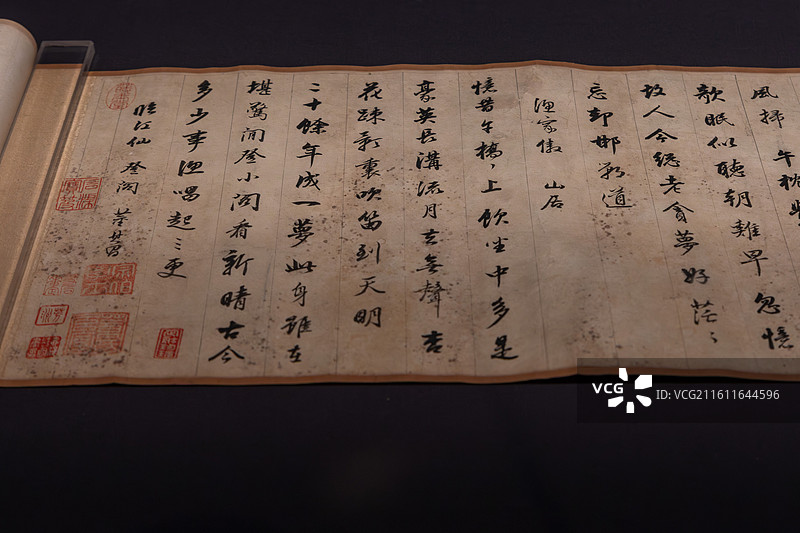 風掃 午枕覺
欹眠似聽朝雞早 忽憶
故人今總老貪夢好茫〻
忘卻邯鄲道
漁家傲 山居
憶昔午橋〻上飲坐中多是
豪英長溝流月去無聲杏
花疎影裏吹笛到天明
二十餘年成一夢此身雖在
堪驚閒登小閣看新晴古今
多少事漁唱起三更
臨江仙 登閣 董其昌
VCG
ID:VCG211611644596